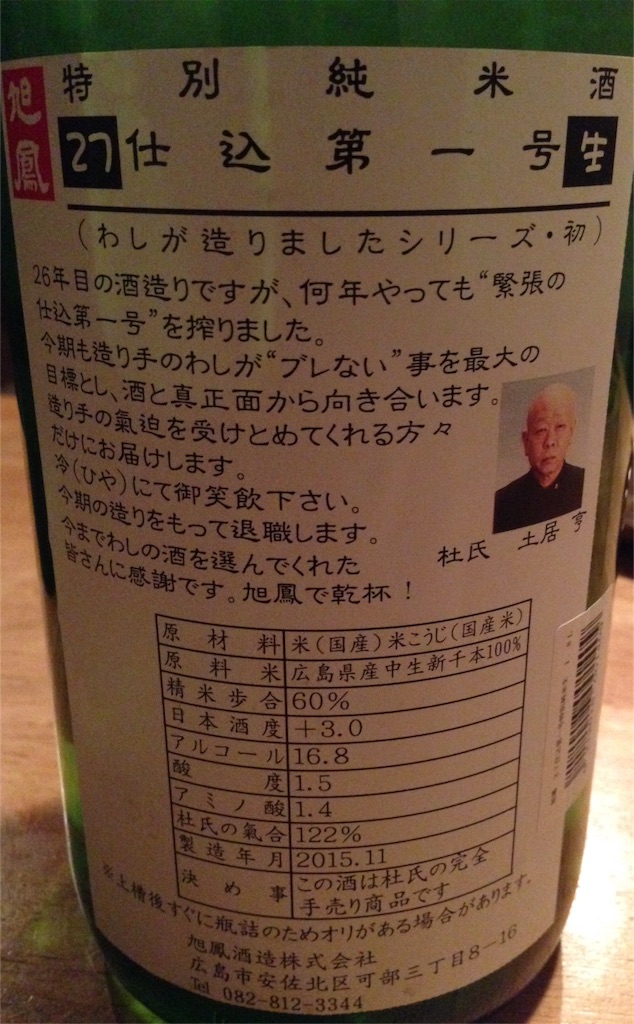 旭鳳
特別純米酒
27仕込第一号生
（わしが造りましたシリーズ・初）
26年目の酒造りですが、何年やっても“緊張の
仕込第一号”を搾りました。
今期も造り手のわしが“ブレない”事を最大の
目標とし、酒と真正面から向き合います。
造り手の氣迫を受けとめてくれる方々
だけにお届けします。
冷（ひや）にて御笑飲下さい。
今期の造りをもって退職します。
今までわしの酒を選んでくれた
皆さんに感謝です。旭鳳で乾杯！
杜氏 土居 亨
原材料 米（国産）米こうじ（国産米）
原料米 広島県産中生新千本100%
精米歩合 60%
日本酒度 +3.0
アルコール 16.8
酸度 1.5
アミノ酸 1.4
杜氏の氣合 122%
製造年月 2015.11
決め事 この酒は杜氏の完全
手売り商品です
※上槽後すぐに瓶詰のためオリがある場合があります。
旭鳳酒造株式会社
広島市安佐北区可部三丁目8-16
Tel 082-812-3344